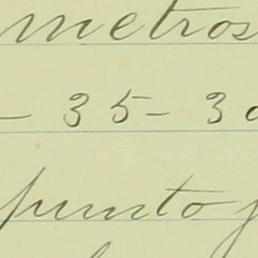 metros
- 35 - 30
punto